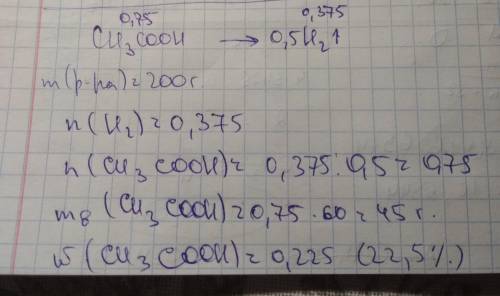 0,75 0,375
CH₃COOH → 0,5H₂↑
m(р-ра)=200г.
n(H₂)=0,375
n(CH₃COOH)= 0,375:0,5=0,75
mв(CH₃COOH)=0,75·60=45г.
ω(CH₃COOH)=0,225 (22,5%.)